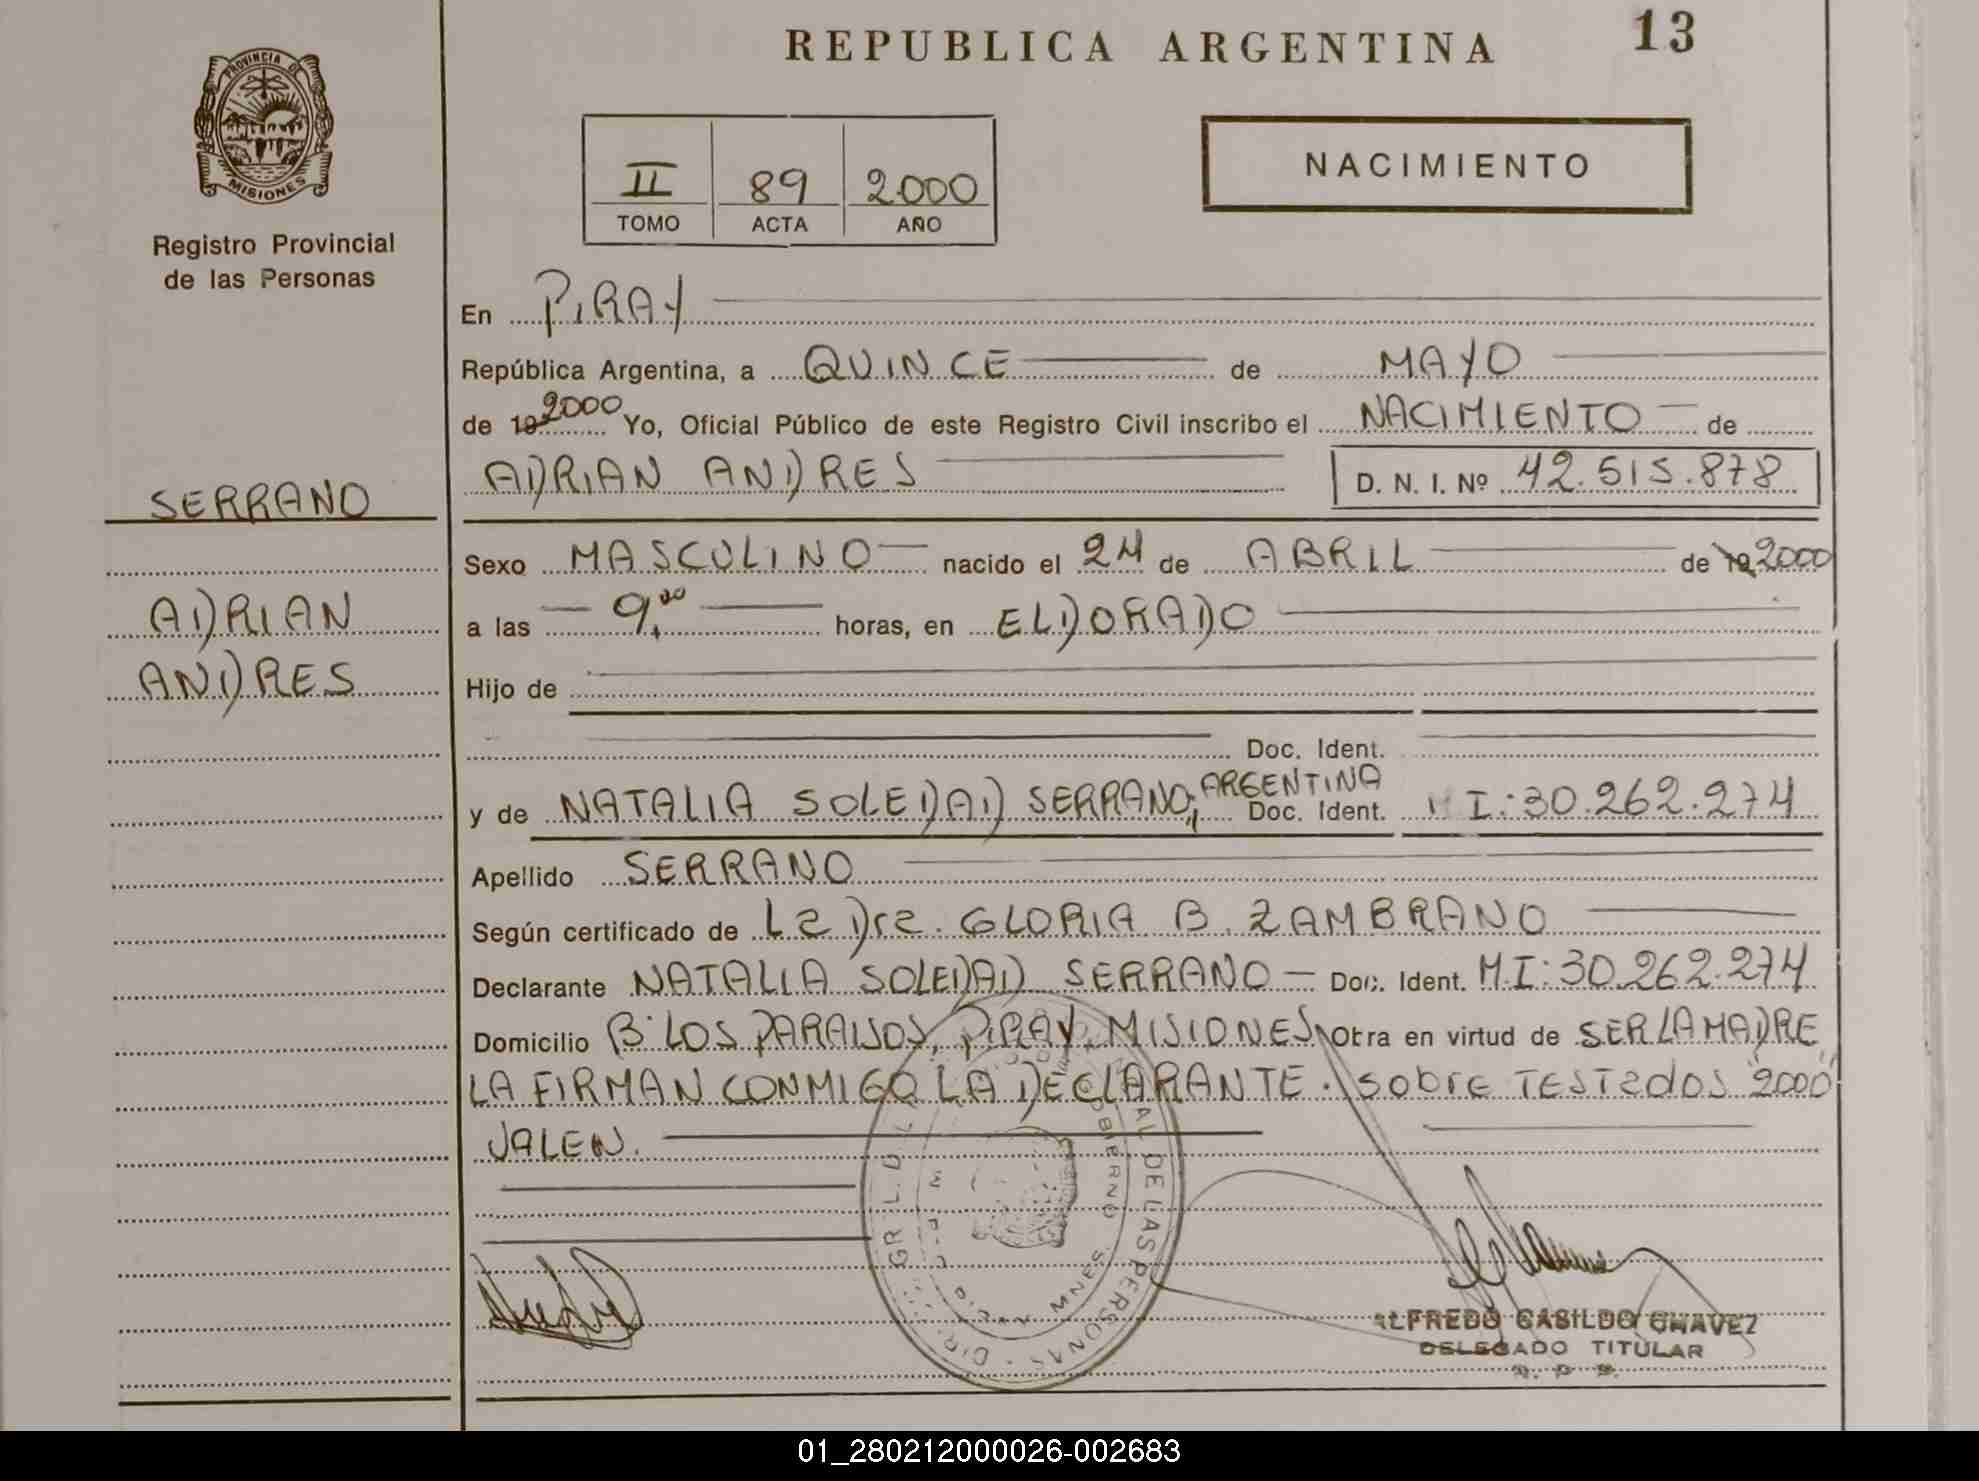 REPUBLICA ARGENTINA
13
PROVINCIA DE
MISIONES
Registro Provincial
de las Personas
II 89 2.000
TOMO ACTA AÑO
NACIMIENTO
En PIRAY
República Argentina, a QUINCE de MAYO
de 19 2000 Yo, Oficial Público de este Registro Civil inscribo el NACIMIENTO de
ADRIAN ANDRES D. N. I. Nº 42.515.878
SERRANO
ADRIAN
ANDRES
Sexo MASCULINO nacido el 24 de ABRIL de 19 2000
a las 9,00 horas, en ELDORADO
Hijo de
Doc. Ident.
y de NATALIA SOLEDAD SERRANO, ARGENTINA Doc. Ident. M I: 30.262.274
Apellido SERRANO
Según certificado de La Dra. GLORIA B. ZAMBRANO
Declarante NATALIA SOLEDAD SERRANO Doc. Ident. M.I: 30.262.274
Domicilio Bº LOS PARAISOS, PIRAY, MISIONES Obra en virtud de SER LA MADRE
LA FIRMAN CONMIGO LA DECLARANTE. sobre TESTados "2000"
VALEN.
DIR. GRAL. DEL
AL DE LAS PERSONAS
GOBIERNO
MNES
ALFREDO CASILDO CHAVEZ
DELEGADO TITULAR
01_280212000026-002683